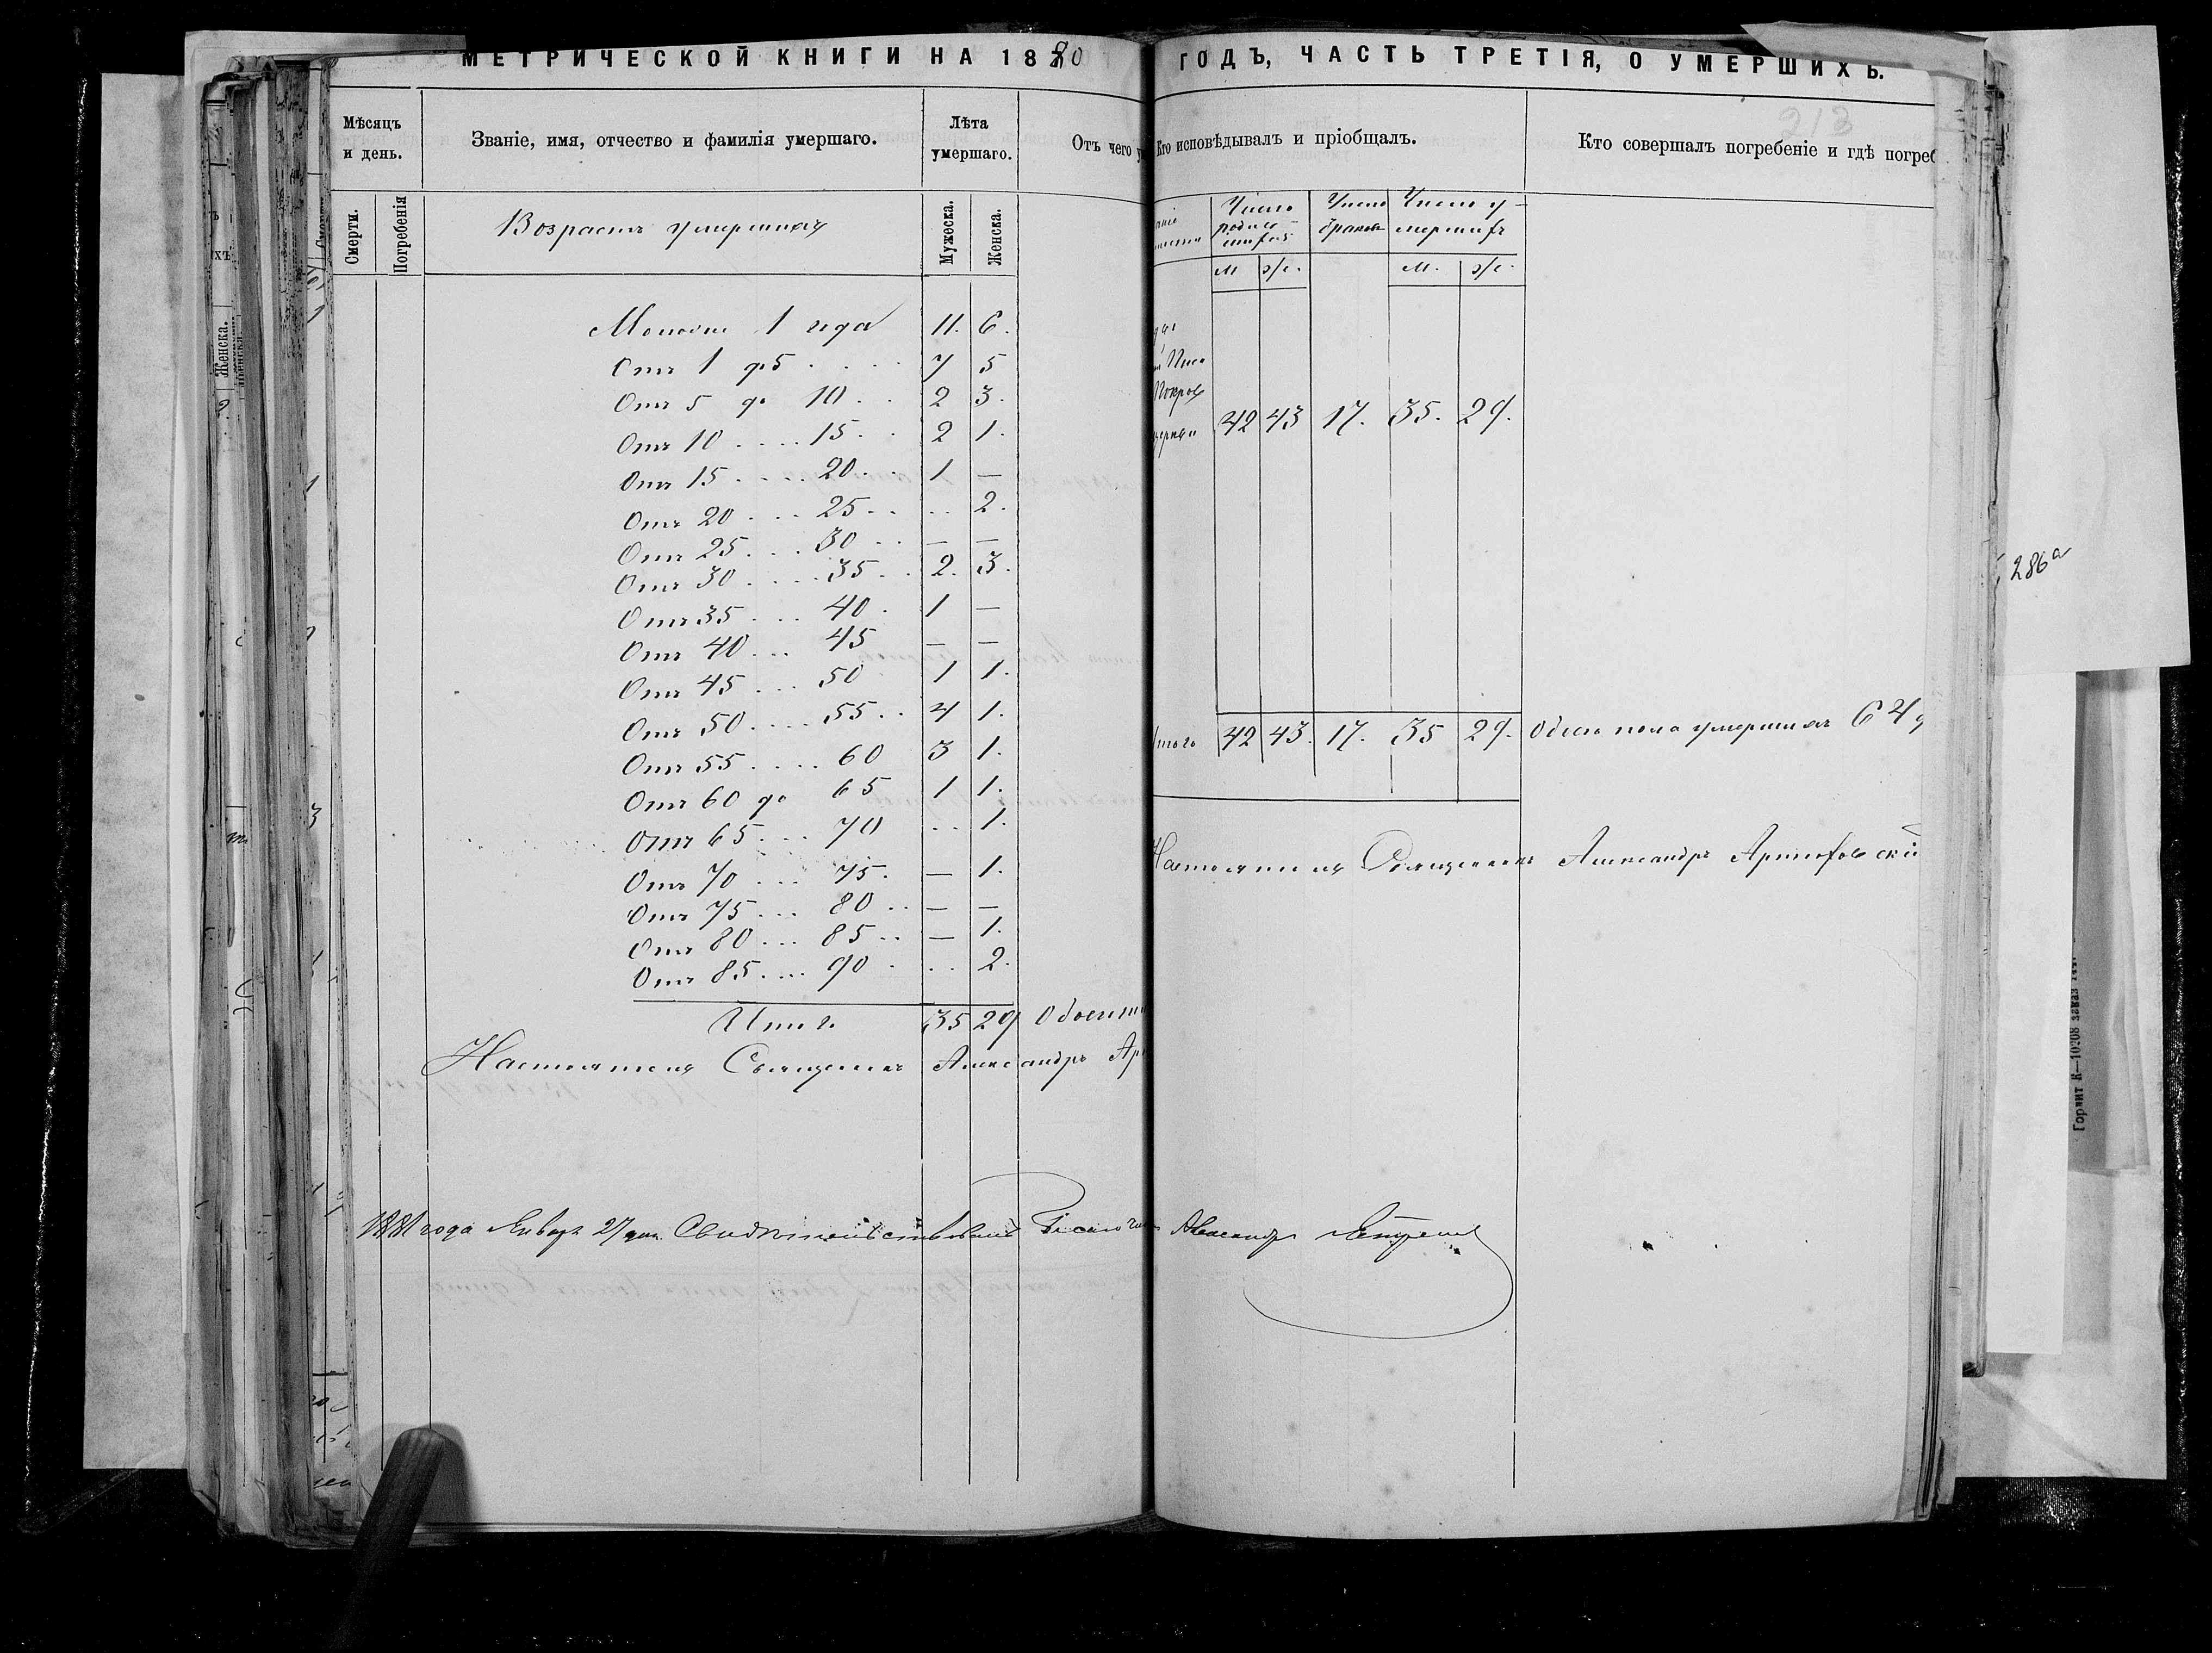 МЕТРИЧЕСКОЙ КНИГИ НА 1880
Мѣсяцъ и день.
Званіе, имя, отчество и фамилія умершаго.
Лѣта умершаго.
Отъ чего
Смерти.
Погребенія
Возрастъ умершихъ
Мужеска.
Женска.
Моложе 1 года 11. 6.
Отъ 1 до 5 . . . . 7 5
Отъ 5 до 10 . . 2 3.
Отъ 10 .... 15 . . 2 1.
Отъ 15 .... 20 . . 1 —
Отъ 20 ... 25 .. .. 2.
Отъ 25 ... 30 .. — —
Отъ 30 .... 35 .. 2. 3.
Отъ 35 ... 40 . 1 —
Отъ 40 ... 45 — —
Отъ 45 ... 50 1 1.
Отъ 50 .... 55 .. 4 1.
Отъ 55 .... 60 3 1.
Отъ 60 до 65 1 1.
Отъ 65 ... 70 .. 1.
Отъ 70 ... 75. — 1.
Отъ 75 ... 80 .. — —
Отъ 80 ... 85 .. — 1.
Отъ 85 .... 90 . .. 2.
Итого 35 29
Настоятель Священникъ Александръ
1881 года Январь 27 дня Свидѣтельствовалъ
ГОДЪ, ЧАСТЬ ТРЕТІЯ, О УМЕРШИХЪ.
213
Кто исповѣдывалъ и пріобщалъ.
Кто совершалъ погребеніе и гдѣ погреб
Число родившихъ
Число браковъ
Число умершихъ
м ж.
м. ж.
42 43 17. 35. 29.
Итого 42 43. 17. 35 29. Обоего пола умершихъ 64
Настоятель Священникъ Александръ
Александръ
286а
Женска.
Горлит К—10208 заказ